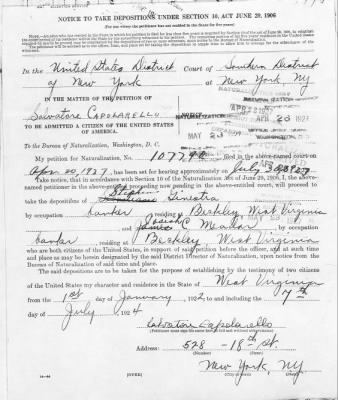 NOTICE TO TAKE DEPOSITIONS UNDER SECTION 10, ACT JUNE 29, 1906
In the United States District Court of Southern District
of New York at New York, NY
IN THE MATTER OF THE PETITION OF
Salvatore Capobarello
TO BE ADMITTED A CITIZEN OF THE UNITED STATES
OF AMERICA.
MAY 23
APR 23 1927
To the Bureau of Naturalization, Washington, D. C.
My petition for Naturalization, No. filed in the above-named court on
Apr 20, 1927, has been set for hearing approximately on July
Take notice, that in accordance with Section 10 of the Naturalization Act of June 29, 1906, I, the above-
named petitioner in the above-entitled proceeding now pending in the above-entitled court, will proceed to
take the deposition of Ginestra
by occupation banker residing at Berkley West Virginia
and Josiah C Meador by occupation
banker residing at Berkley West Virginia
who are both citizens of the United States, in support of said petition before the officer, and at such time
and place as may be herein designated by the said District Director of Naturalization, upon notice from the
Bureau of Naturalization of said time and place.
The said depositions are to be taken for the purpose of establishing by the testimony of two citizens
of the United States my character and residence in the State of West Virginia
from the 1st day of January 192 to and including the 7th
day of July 1924
Salvatore Capobarello
Address: 528 - 18th St.
(Number) (Street)
New York, NY
[OVER]